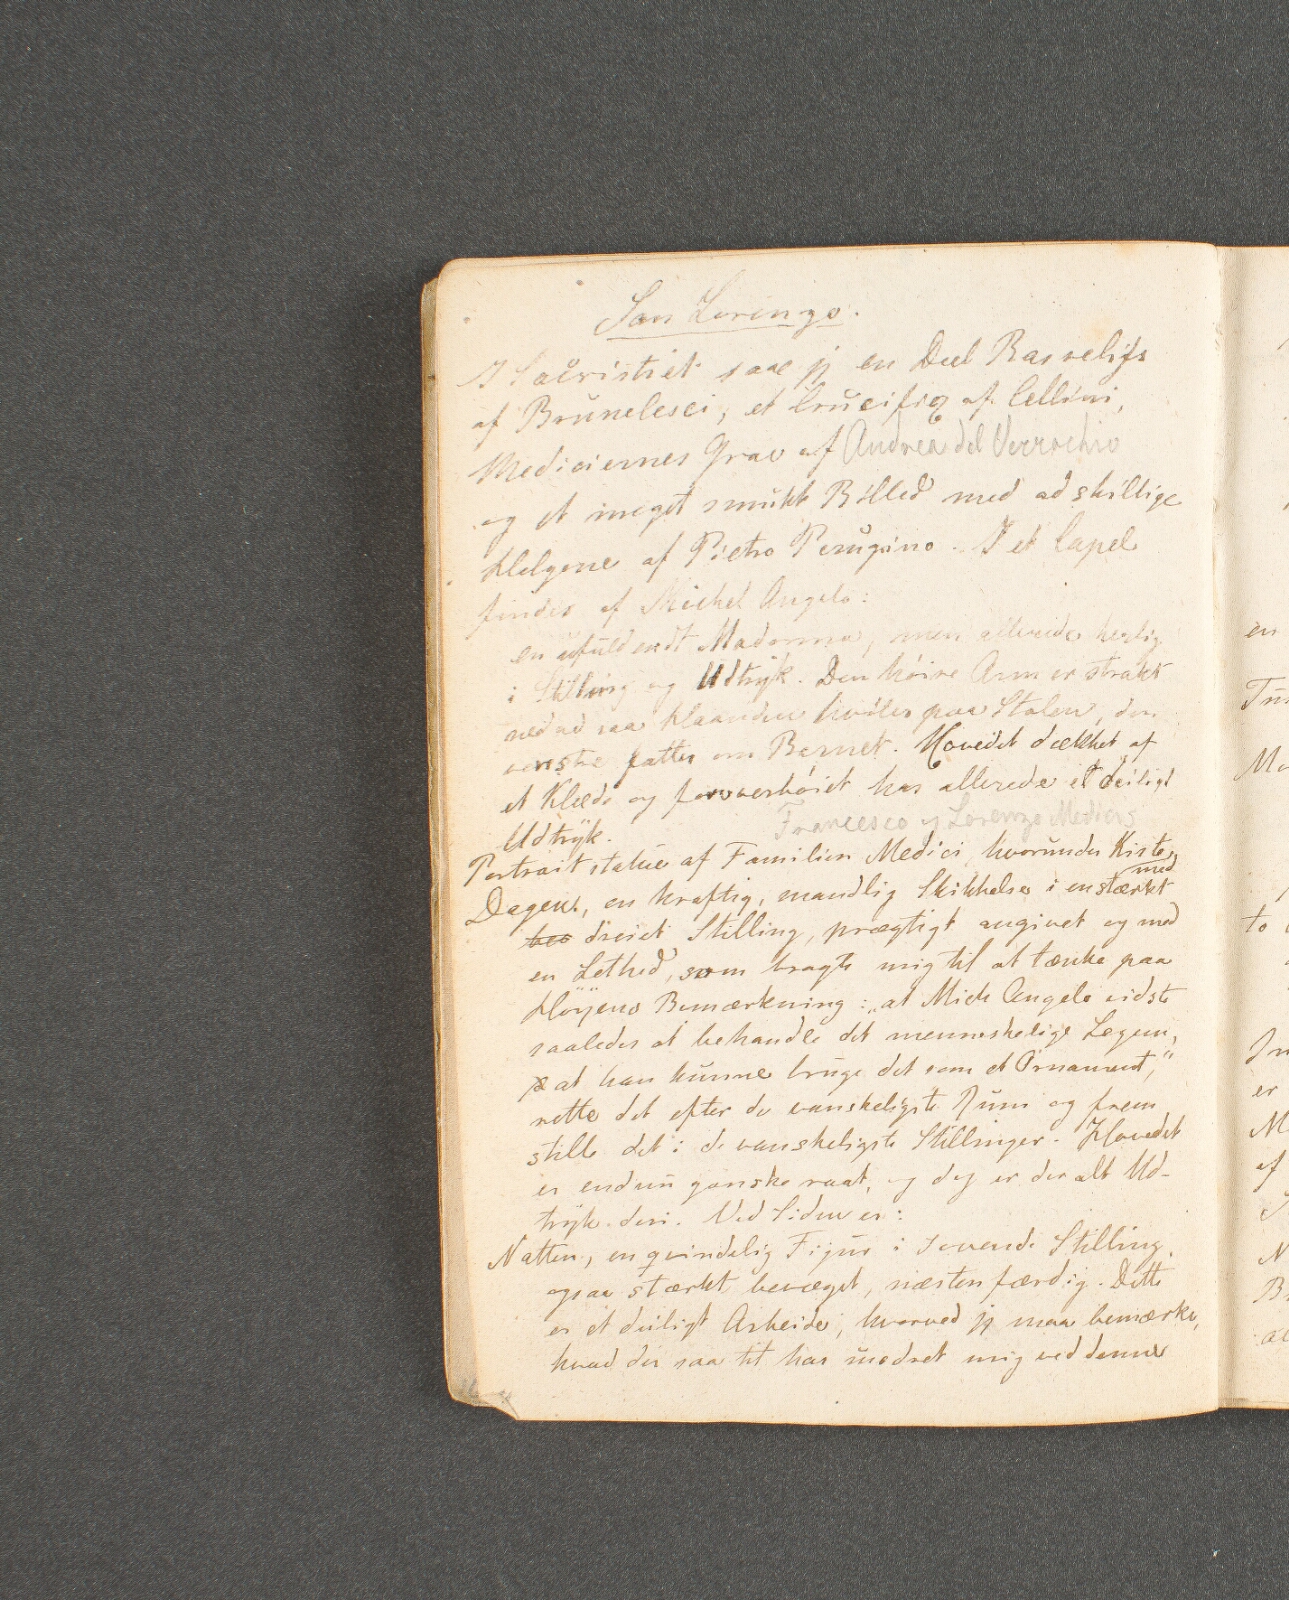 San Lorenzo.
I Sacristiet saae jeg en Deel Basreliefs
af Brunelesci, et Crucifix af Cellini,
Mediciernes Grav af Andrea del Verrochio
og et meget smukt Billed med adskillige
Helgene af Pietro Perugino. I et Capel
findes af Michel Angelo:
en ufuldendt Madonna, men allerede herlig
i Stilling og Udtryk. Den høire Arm er strakt
nedad saa Haanden hviler paa Stolen, den
venstre fatter om Barnet. Hovedet dækket af
et Klæde og foroverbøiet har allerede et deiligt
Udtryk.
Francesco og Lorenzo Medicis
Portraitstatue af Familien Medici, hvorunder Kiste
med
Dagen, en kraftig, mandlig Skikkelse i en stærkt
bev dreiet Stilling, prægtigt angivet og med
en Lethed, som bragte mig til at tænke paa
Höyens Bemærkning: „at Mich Angelo vidste
saaledes at behandle det menneskelige Legem,
at han kunne bruge det som et Ornament,“
rette det efter de vanskeligste Rum og frem
stille det i de vanskeligste Stillinger. Hovedet
er endnu ganske raat, og dog er der alt Ud-
tryk deri. Ved Siden er:
Natten, en qvindelig Figur i sovende Stilling,
ogsaa stærkt bevæget, næsten færdig. Dette
er et deiligt Arbeide, hvorved jeg maa bemærke,
hvad der saa tit har mødret mig ved denne
en
to
er
af